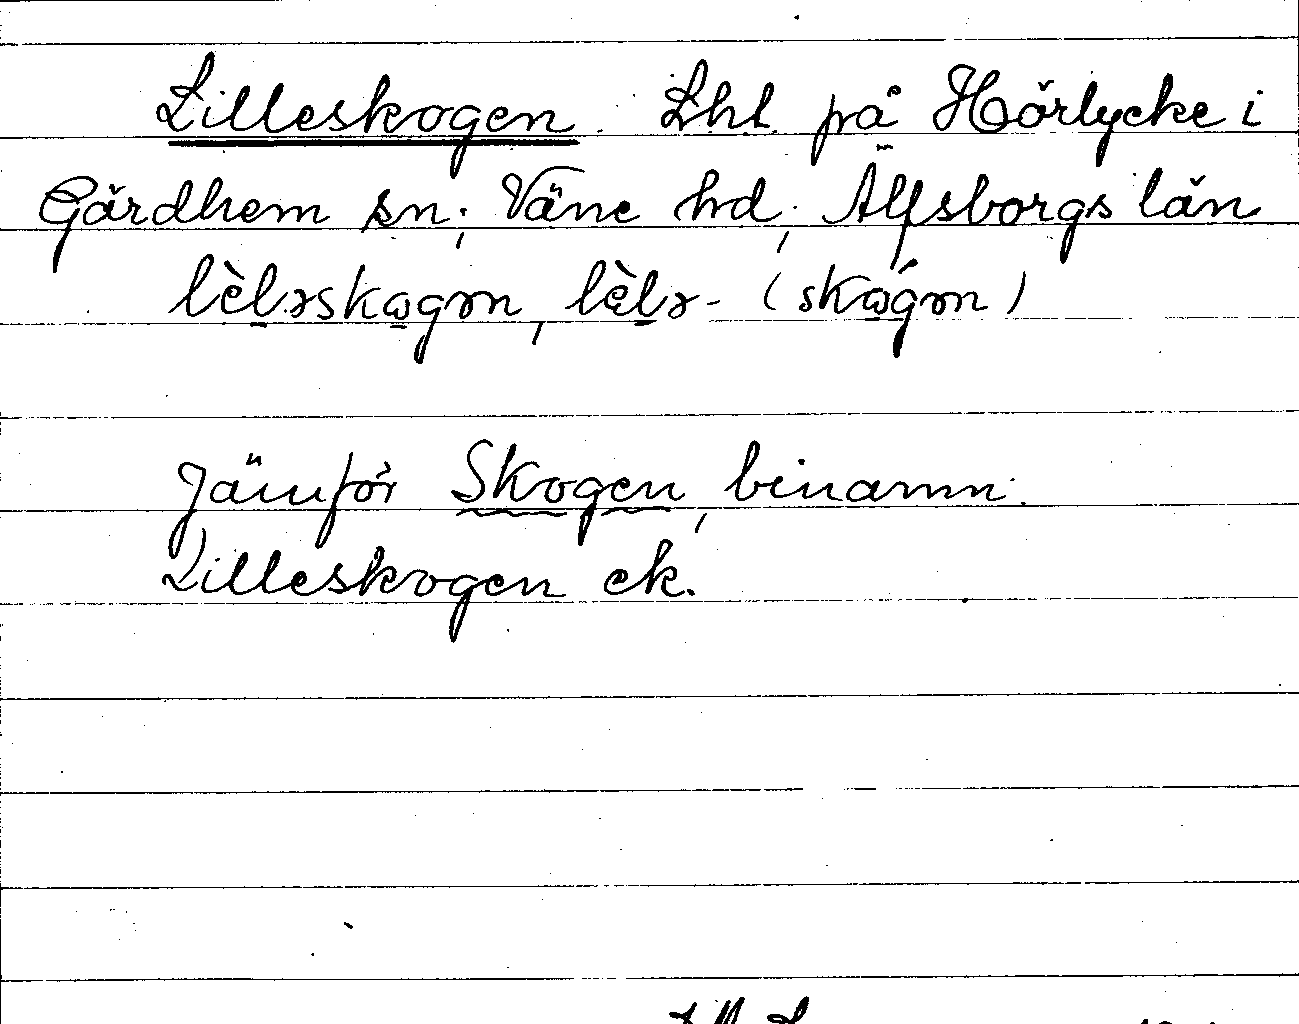 Lilleskogen. Lht. på Hörlycke i
Gärdhem sn; Väne hd; Älfsborgs län
lèlɘskɷgɘn, lèlɘ- (skɷ́gɘn)
Jämför Skogen, binamn.
Lilleskogen ek.